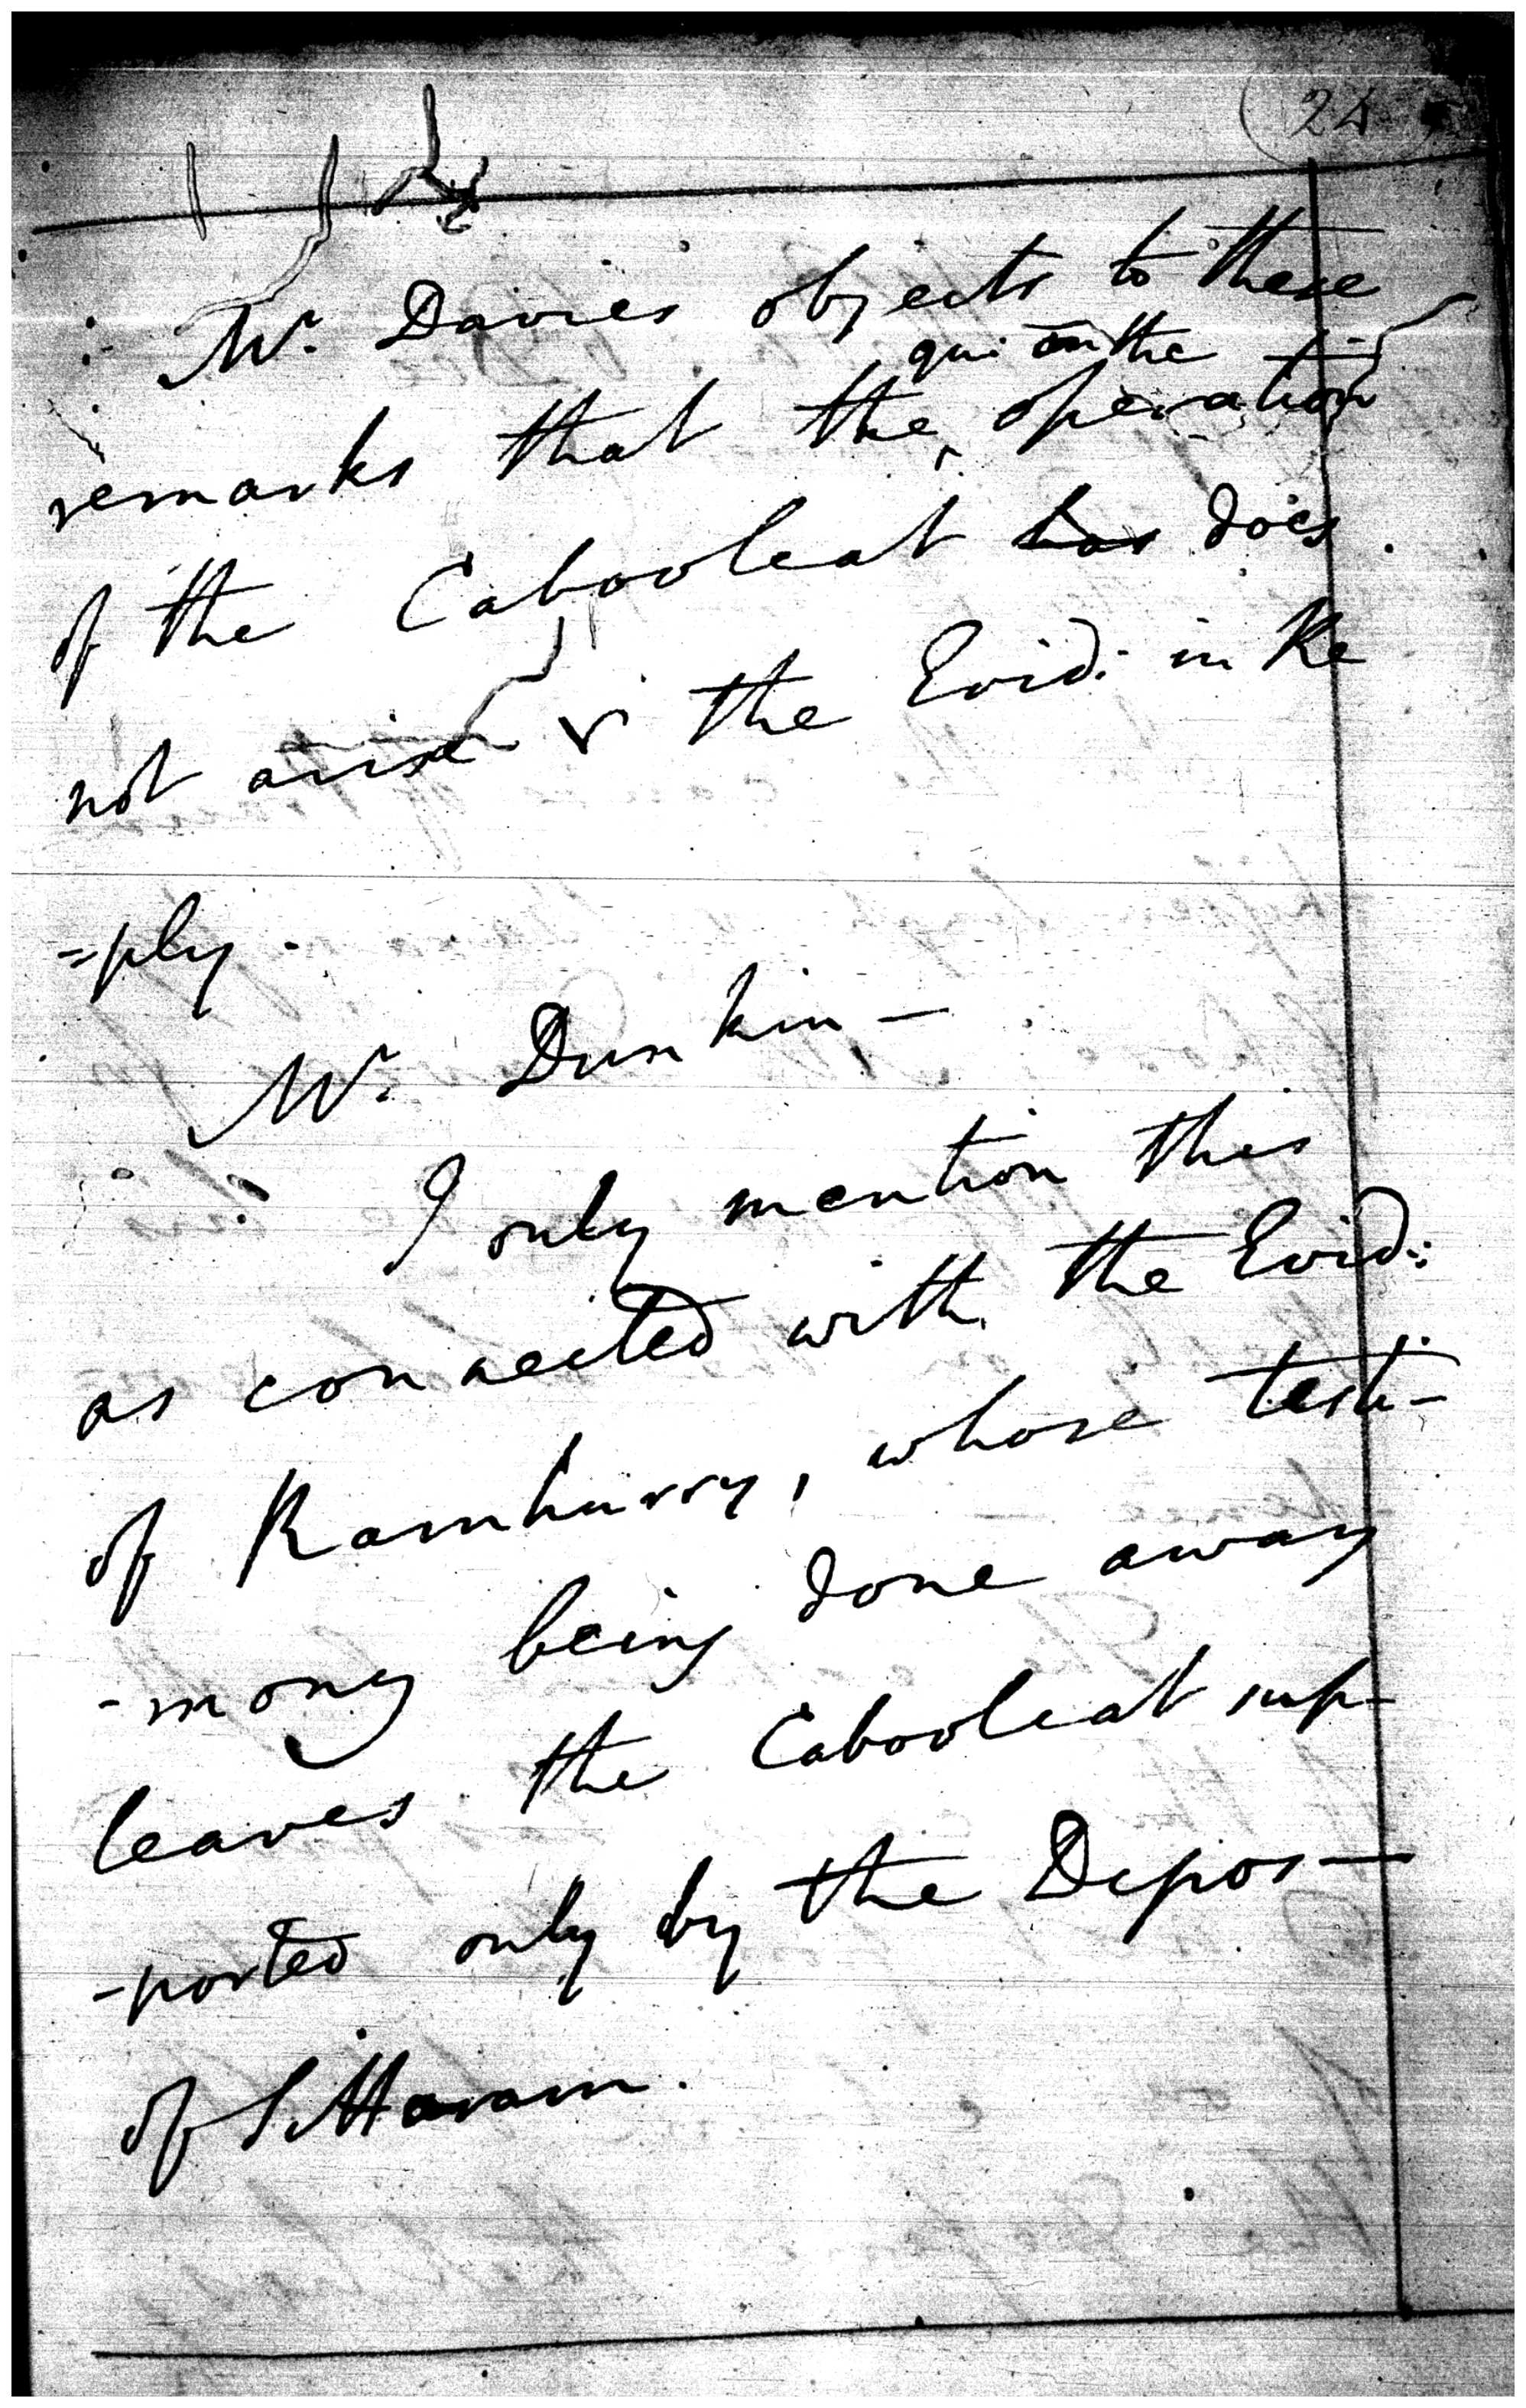 24
Mr. Davies objects to these
qui: on the
remarks that the operation
of the Cabooleat has does
not arise the Evid: in Re
=ply.
Mr. Dunkin —
I only mention this
as connected with the Evid:
of Ramhurry, whose testi-
-mony being done away
leaves the Cabooleat sup-
-ported only by the Depos—
of Sittaram.